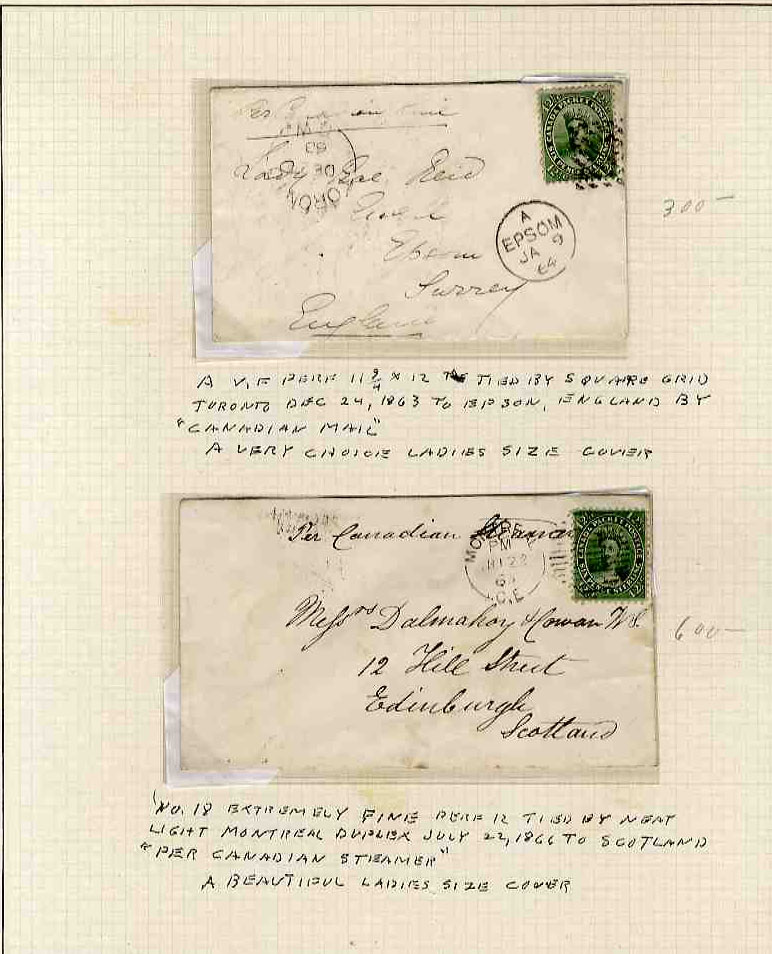 Per Canadian Mail
CANADA PACKET POSTAGE
Lady Reid
DE
TORON
A
EPSOM
JA 9
64
Ewell
Epsom
Surrey
England
300—
A V.F PERF 11 3/4 X 12 TIED BY SQUARE GRID
TORONTO DEC 24, 1863 TO EPSON, ENGLAND BY
"CANADIAN MAIL"
A VERY CHOICE LADIES SIZE COVER
Per Canadian Steamer
MONTREAL
PM
22
C.E
CANADA PACKET POSTAGE
SIX PENCE STERLING
Messrs Dalmahoy & Cowan W.S.
12 Hill Street
Edinburgh
Scotland
600—
NO. 18 EXTREMELY FINE PERF 12 TIED BY NEAT
LIGHT MONTREAL DUPLEX JULY 22, 1866 TO SCOTLAND
"PER CANADIAN STEAMER"
A BEAUTIFUL LADIES SIZE COVER